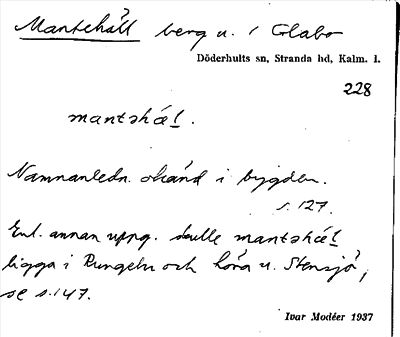 Mantehäll berg u. i Glabo
Döderhults sn, Stranda hd, Kalm. l.
228
mantəhäl.
Namnanledn. okänd i bygden.
s. 127.
Enl. annan uppg. skulle mantəhäl
ligga i Rungeln och höra u. Stensjö,
se s. 147.
Ivar Modéer 1937